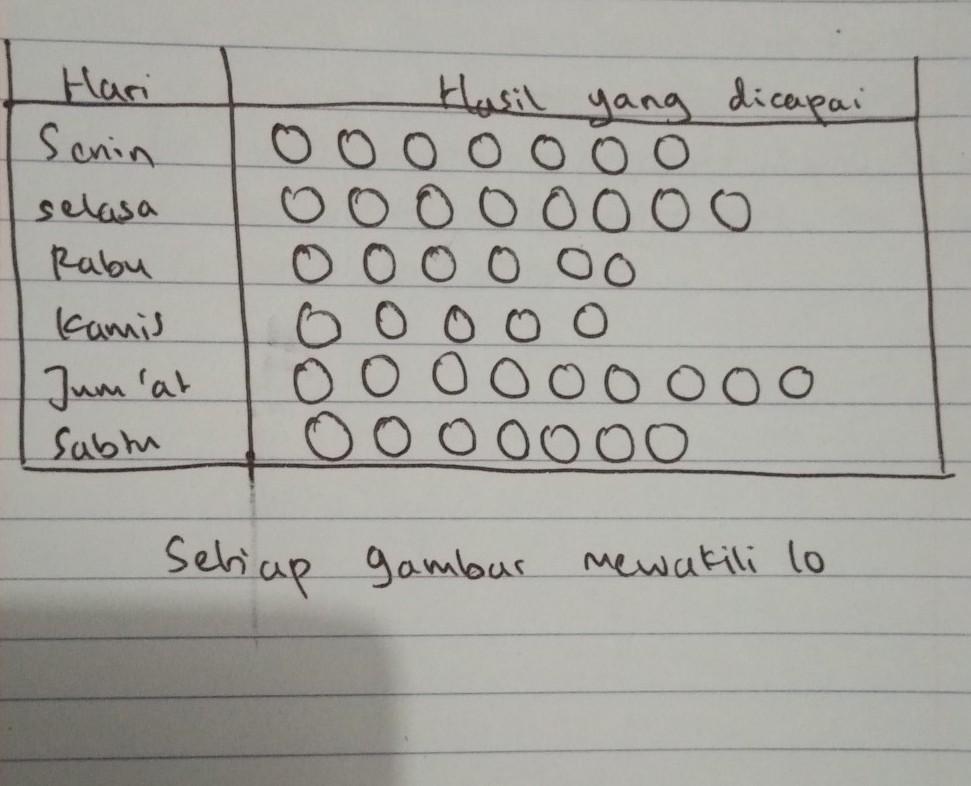 Hari Hasil yang dicapai
Senin O O O O O O O
selasa O O O O O O O O
Rabu O O O O O O
Kamis O O O O O
Jum'at O O O O O O O O O
Sabtu O O O O O O O
Setiap gambar mewakili 10